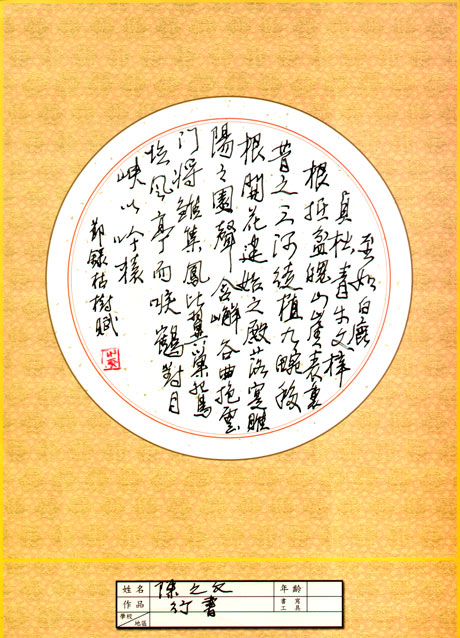 至如白鹿
貞松青牛文梓
根抵盤魄山崖表裏
昔之三河徒植九畹移
根開花建始之殿落寔睢
陽之園聲含嶰谷曲抱雲
门將雛集鳳比翼巢鴛
臨風亭而唳鶴對月
峽以吟猿
節錄枯樹賦
姓名 陳之文 年齡
作品 行書 書寫工具
學校/地區